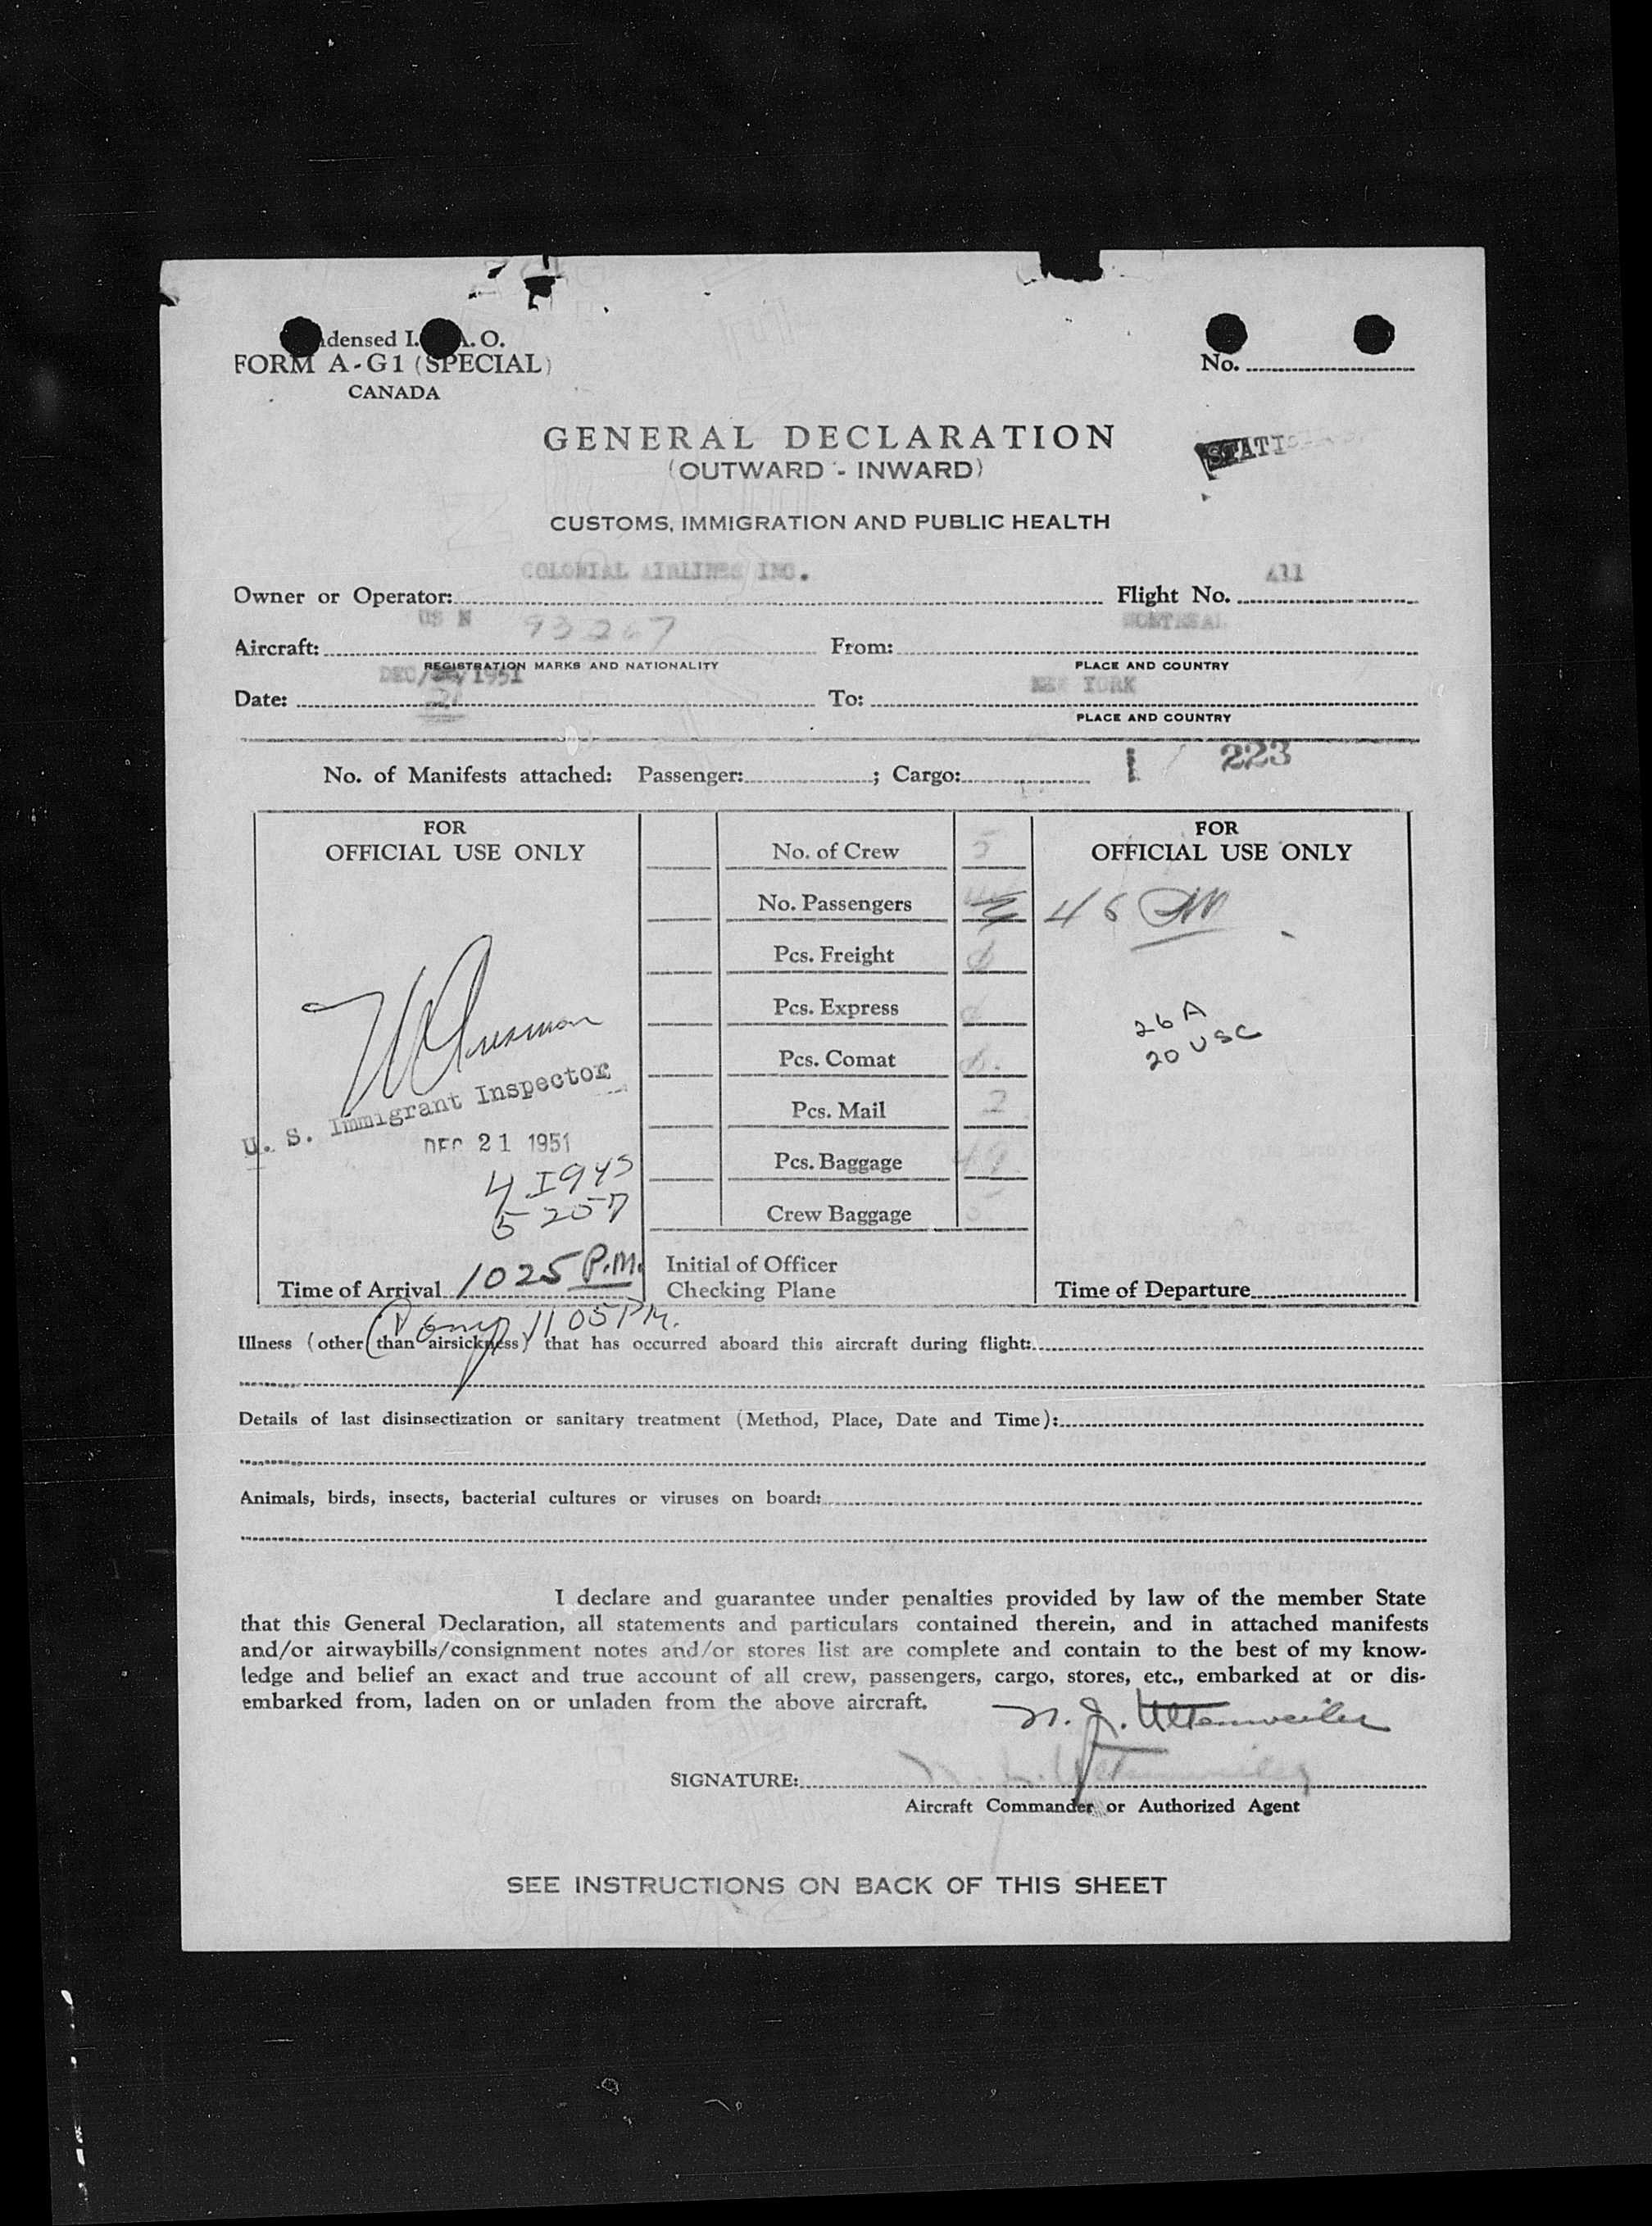 ndensed I. A. O.
FORM A-G1 (SPECIAL)
CANADA
No.
GENERAL DECLARATION
(OUTWARD - INWARD)
CUSTOMS, IMMIGRATION AND PUBLIC HEALTH
COLONIAL AIRLINES INC.
411
Owner or Operator:
Flight No.
US N 93267
MONTREAL
Aircraft:
From:
REGISTRATION MARKS AND NATIONALITY
PLACE AND COUNTRY
DEC/ /1951
NEW YORK
Date: 21
To:
PLACE AND COUNTRY
No. of Manifests attached: Passenger: ; Cargo:
1 / 223
FOR
OFFICIAL USE ONLY
U. S. Immigrant Inspector
DEC 21 1951
5 257
Time of Arrival 1025 P.M.
No. of Crew 5
No. Passengers
Pcs. Freight
Pcs. Express
Pcs. Comat
Pcs. Mail 2
Pcs. Baggage 49
Crew Baggage
Initial of Officer
Checking Plane
FOR
OFFICIAL USE ONLY
46
26 A
20 USC
Time of Departure
1105 PM.
Illness (other than airsickness) that has occurred aboard this aircraft during flight:
Details of last disinsectization or sanitary treatment (Method, Place, Date and Time):
Animals, birds, insects, bacterial cultures or viruses on board:
I declare and guarantee under penalties provided by law of the member State
that this General Declaration, all statements and particulars contained therein, and in attached manifests
and/or airwaybills/consignment notes and/or stores list are complete and contain to the best of my know-
ledge and belief an exact and true account of all crew, passengers, cargo, stores, etc., embarked at or dis-
embarked from, laden on or unladen from the above aircraft.
N. J. Ultenweiler
SIGNATURE:
Aircraft Commander or Authorized Agent
SEE INSTRUCTIONS ON BACK OF THIS SHEET